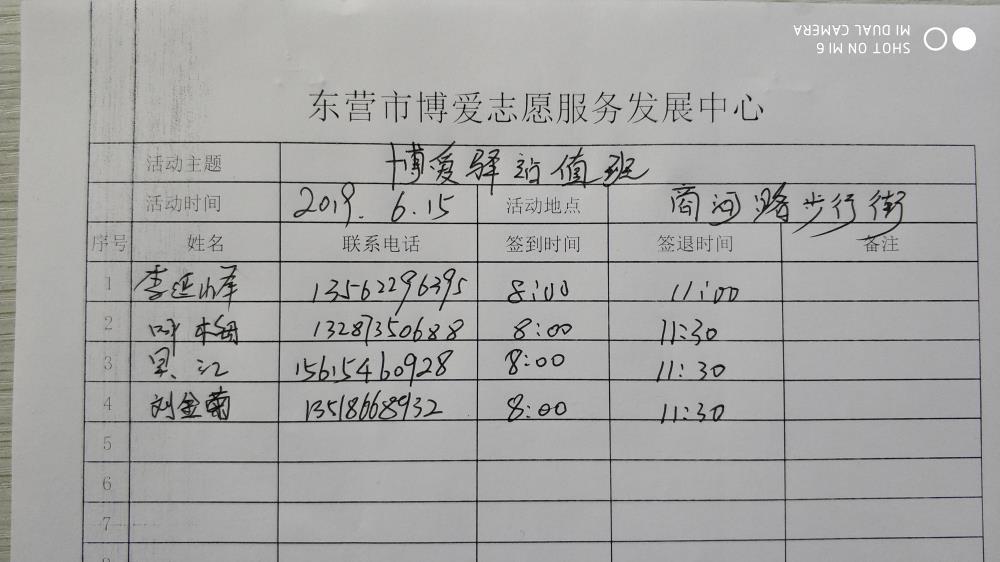 SHOT ON MI 6
MI DUAL CAMERA
东营市博爱志愿服务发展中心
活动主题 博爱驿站值班
活动时间 2019. 6.15 活动地点 商河路步行街
序号 姓名 联系电话 签到时间 签退时间 备注
1 李延 13562296395 8:00 11:00
2 13287350688 8:00 11:30
3 江 15615460928 8:00 11:30
4 刘金菊 13518668932 8:00 11:30
5
6
7